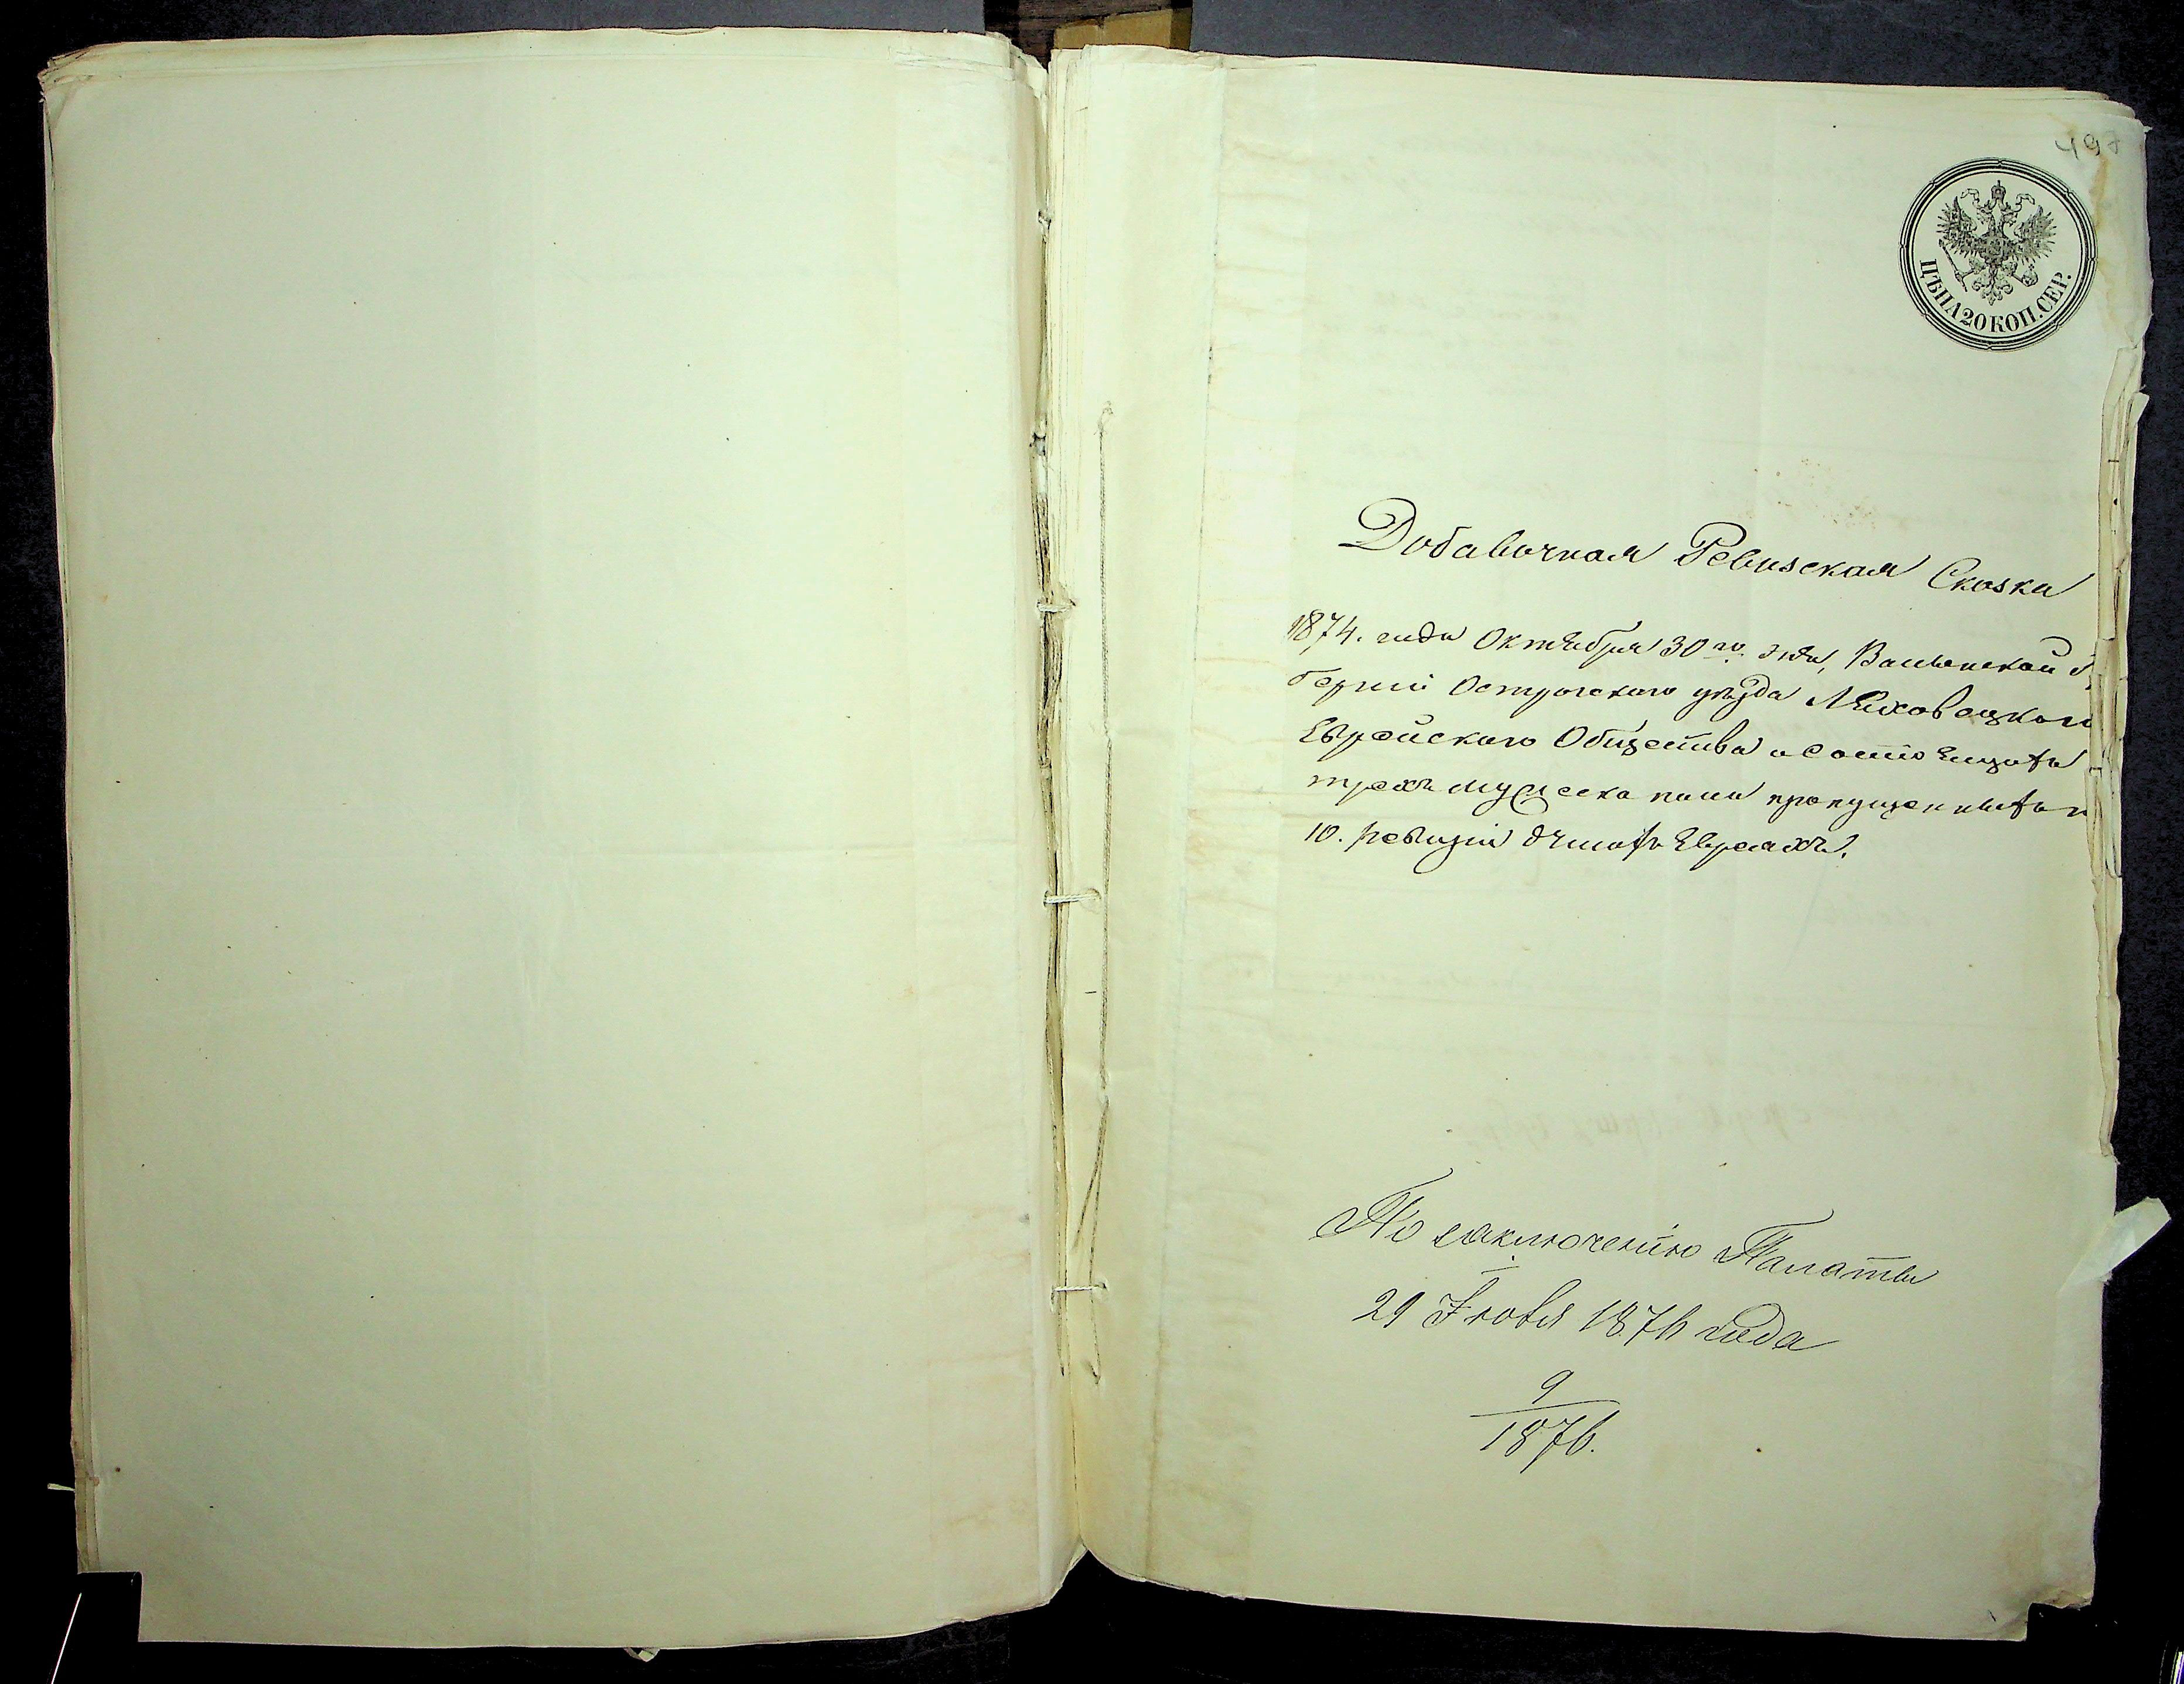 497
ЦѢНА 20 КОП. СЕР.
Добавочная Ревизская Сказка
1874. года Октября 30го. дня, Волынской
берніи Острогскаго уѣзда Ляховецкаго
Еврейскаго Общества о состоящихъ
трехъ мужеска пола пропущенныхъ
10. ревизіи душахъ Евреяхъ.
По заключенію Палаты
29 Іюля 1876 года
9
1876.